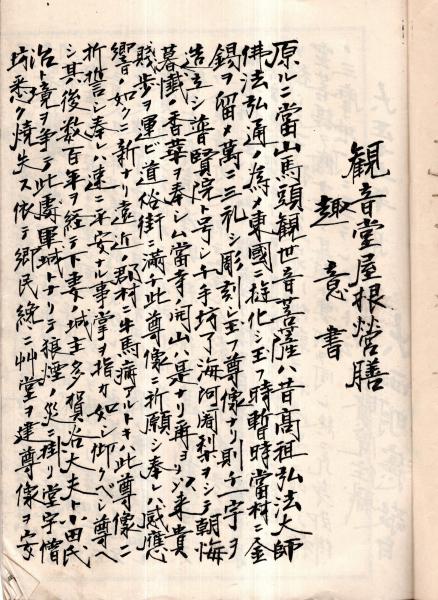 観音堂屋根営膳
趣意書
原ルニ當山馬頭観世音菩薩ハ昔高祖弘法大師
佛法弘通ノ為メ東國ニ遊化シ玉フ時暫時當村ニ金
錫ヲ留メ萬ニ三礼シ彫刻シ玉フ尊像ナリ則チ一宇ヲ
造立シ普賢院ト号シ千手坊了海阿闍梨ヲシテ朝悔
暮懺ノ香華ヲ奉シム當寺ノ開山ハ是ナリ再ヨリ以来貴
賤歩ヲ運ビ道俗街ニ満チ此尊像ニ祈願シ奉レハ感應
響ノ如クニ新ナリ遠近ノ郡村ニ牛馬病アルトキハ此尊像ニ
祈誓シ奉レハ速ニ平安ナル事掌ヲ指カ如シ仰クベシ尊ベ
シ其後数百年ヲ経テ下妻ノ城主多賀谷大夫ト小田氏
治ト境ヲ争テ此處軍城トナリテ狼煙ノ災ニ罹リ堂宇僧
坊悉ク焼失ス依テ郷民纔ニ艸堂ヲ建尊像ヲ安